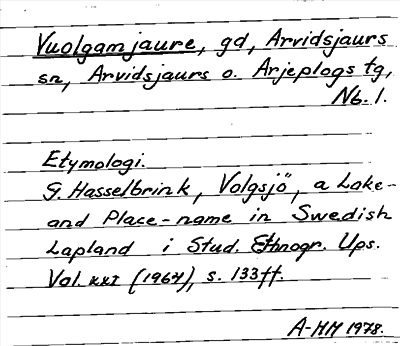 Vuolgamjaure, gd, Arvidsjaurs
sn, Arvidsjaurs o. Arjeplogs tg,
Nb. l.
Etymologi.
G. Hasselbrink, Volgsjö, a Lake-
and Place-name in Swedish
Lapland i Stud. Ethnogr. Ups.
Vol. XXI (1964), s. 133ff.
A-HM 1978.